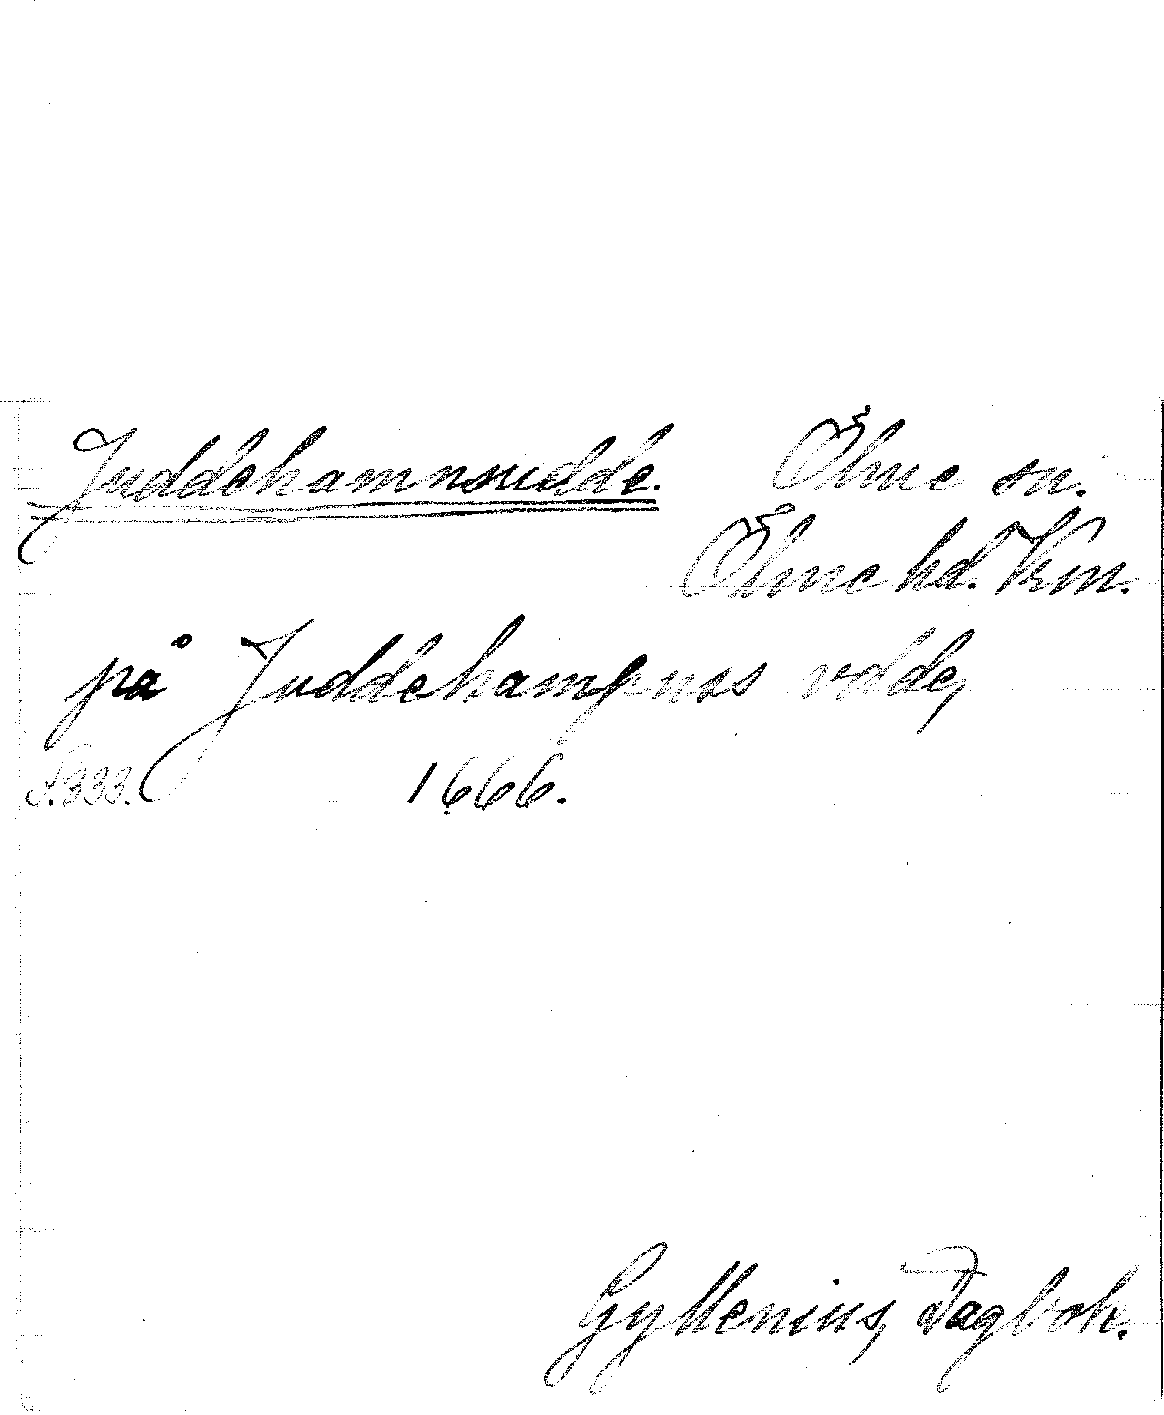 Juddehamnsudde. Ölme sn.
Ölme hd. Vrm.
på Juddehampnes vdde,
S. 333. 1666.
Gyllenius, Dagbok.